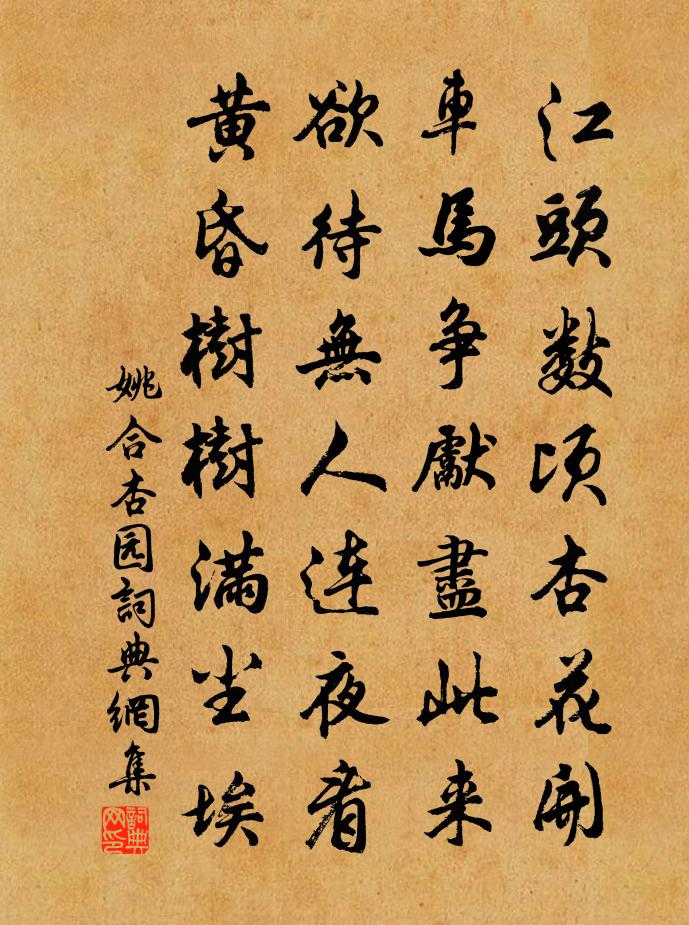 江頭數頃杏花開
車馬争獻盡此来
欲待無人连夜看
黄昏樹樹满尘埃
姚合杏园詞典網集
詞典网印